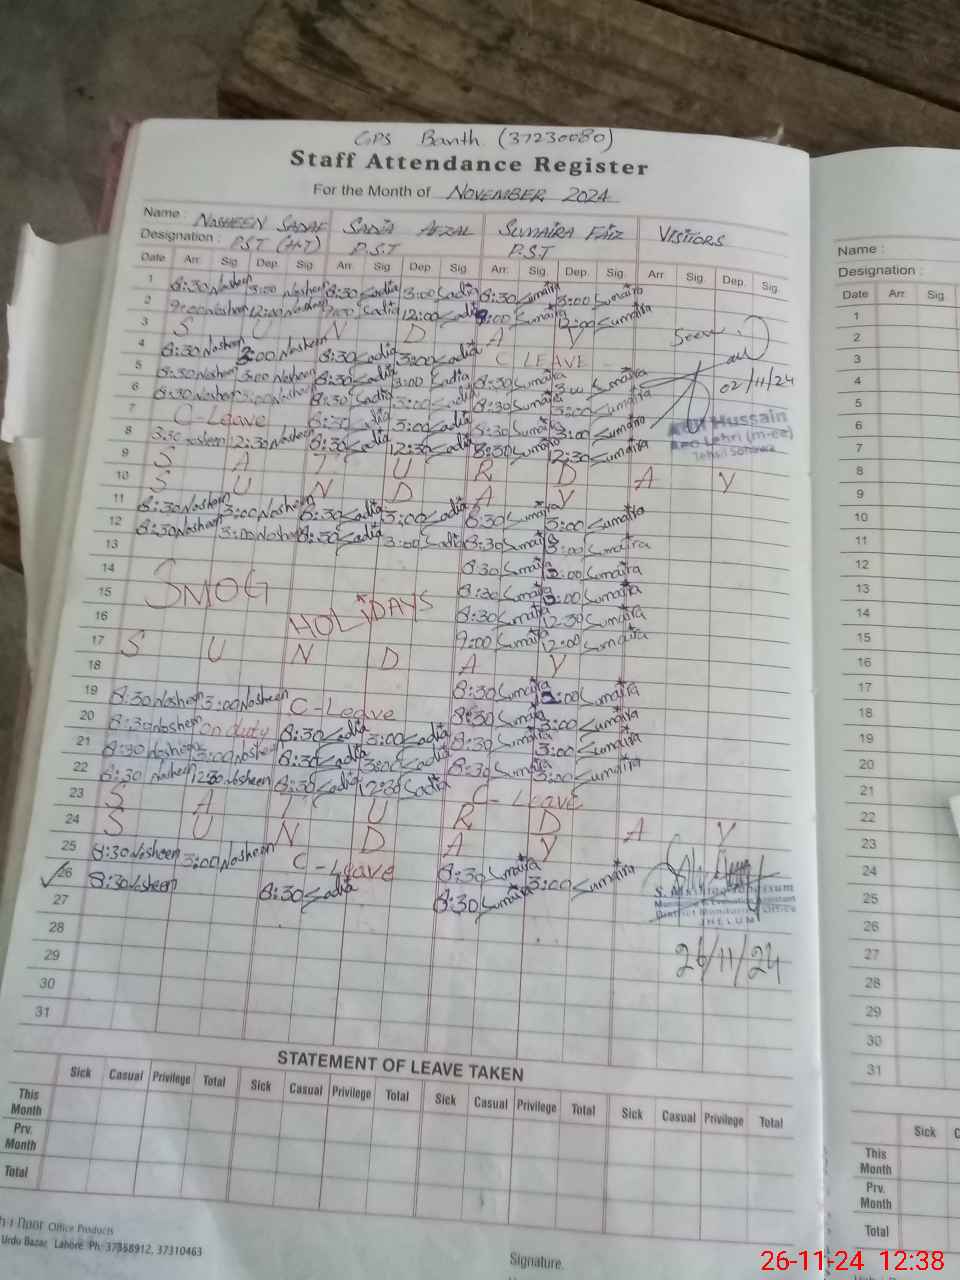 GPS Banth (37230080)
Staff Attendance Register
For the Month of NOVEMBER 2024
Name : NOSHEEN SADAF SADIA AFZAL SUMAIRA FAIZ VISTIORS
Designation : P.S.T (H.T) P.S.T P.S.T
Date Arr. Sig. Dep. Sig. Arr. Sig. Dep. Sig. Arr. Sig. Dep. Sig. Arr. Sig. Dep. Sig.
1 8:30 Nosheen 3:00 Nosheen 8:30 Sadia 3:00 Sadia 8:30 Sumaira 3:00 Sumaira
2 9:00 Nosheen 12:00 Nosheen 9:00 Sadia 12:00 Sadia 9:00 Sumaira 12:00 Sumaira
3 S U N D A Y
Seen
4 8:30 Nosheen 3:00 Nosheen 8:30 Sadia 3:00 Sadia C LEAVE
5 8:30 Nosheen 3:00 Nosheen 8:30 Sadia 3:00 Sadia 8:30 Sumaira 3:00 Sumaira
02/11/24
6 8:30 Nosheen 3:00 Nosheen 8:30 Sadia 3:00 Sadia 8:30 Sumaira 3:00 Sumaira
7 C-Leave 8:30 Sadia 3:00 Sadia 8:30 Sumaira 3:00 Sumaira
Hussain
AEO Lehri (m-ee)
Tehsil Sohawa
8 12:30 Nosheen 8:30 Sadia 12:30 Sadia 8:30 Sumaira 12:30 Sumaira
9 S A T U R D A Y
10 S U N D A Y
11 8:30 Nosheen 3:00 Nosheen 8:30 Sadia 3:00 Sadia 8:30 Sumaira 3:00 Sumaira
12 8:30 Nosheen 3:00 Nosheen 8:30 Sadia 3:00 Sadia 8:30 Sumaira 3:00 Sumaira
13 8:30 Sumaira 3:00 Sumaira
14 8:30 Sumaira 3:00 Sumaira
15 SMOG HOLIDAYS 8:30 Sumaira 12:30 Sumaira
16 9:00 Sumaira 12:00 Sumaira
17 S U N D A Y
18 8:30 Sumaira 3:00 Sumaira
19 8:30 Nosheen 3:00 Nosheen C-Leave 8:30 Sumaira 3:00 Sumaira
20 8:30 Nosheen on duty 8:30 Sadia 3:00 Sadia 8:30 Sumaira 3:00 Sumaira
21 8:30 Nosheen 3:00 Nosheen 8:30 Sadia 3:00 Sadia 8:30 Sumaira 3:00 Sumaira
22 8:30 Nosheen 12:30 Nosheen 8:30 Sadia 12:30 Sadia C-Leave
23 S A T U R D A Y
24 S U N D A Y
25 8:30 Nosheen 3:00 Nosheen C-Leave 8:30 Sumaira 3:00 Sumaira
26 8:30 Nosheen 8:30 Sadia 8:30 Sumaira
Monitoring & Evaluation Assistant
District Monitoring Office
JHELUM
26/11/24
27
28
29
30
31
STATEMENT OF LEAVE TAKEN
Sick Casual Privilege Total Sick Casual Privilege Total Sick Casual Privilege Total Sick Casual Privilege Total
This Month
Prv. Month
Total
Office Products
Urdu Bazar, Lahore. Ph: 37358912, 37310463
Signature.
Name :
Designation :
Date Arr. Sig.
1
2
3
4
5
6
7
8
9
10
11
12
13
14
15
16
17
18
19
20
21
22
23
24
25
26
27
28
29
30
31
Sick
This Month
Prv. Month
Total
26-11-24 12:38